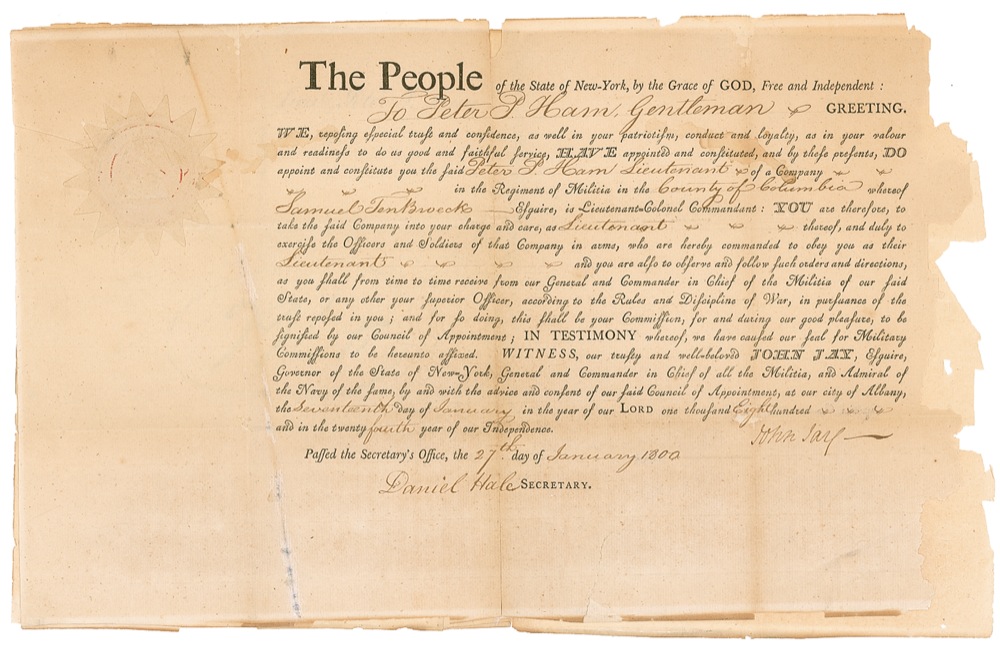 The People of the State of New-York, by the Grace of GOD, Free and Independent:
To Peter P. Ham, Gentleman GREETING.
WE, reposing especial trust and confidence, as well in your patriotism, conduct and loyalty, as in your valour
and readiness to do us good and faithful service, HAVE appointed and constituted, and by these presents, DO
appoint and constitute you the said Peter P. Ham Lieutenant of a Company
in the Regiment of Militia in the County of Columbia whereof
Samuel TenBroeck Esquire, is Lieutenant-Colonel Commandant: YOU are therefore, to
take the said Company into your charge and care, as Lieutenant thereof, and duly to
exercise the Officers and Soldiers of that Company in arms, who are hereby commanded to obey you as their
Lieutenant and you are also to observe and follow such orders and directions,
as you shall from time to time receive from our General and Commander in Chief of the Militia of our said
State, or any other your superior Officer, according to the Rules and Discipline of War, in pursuance of the
trust reposed in you; and for so doing, this shall be your Commission, for and during our good pleasure, to be
signified by our Council of Appointment; IN TESTIMONY whereof, we have caused our seal for Military
Commissions to be hereunto affixed. WITNESS, our trusty and well-beloved JOHN JAY, Esquire,
Governor of the State of New-York, General and Commander in Chief of all the Militia, and Admiral of
the Navy of the same, by and with the advice and consent of our said Council of Appointment, at our city of Albany,
the Seventeenth day of January in the year of our LORD one thousand Eight hundred
and in the twenty fourth year of our Independence.
John Jay
Passed the Secretary's Office, the 27th day of January 1800
Daniel Hale SECRETARY.